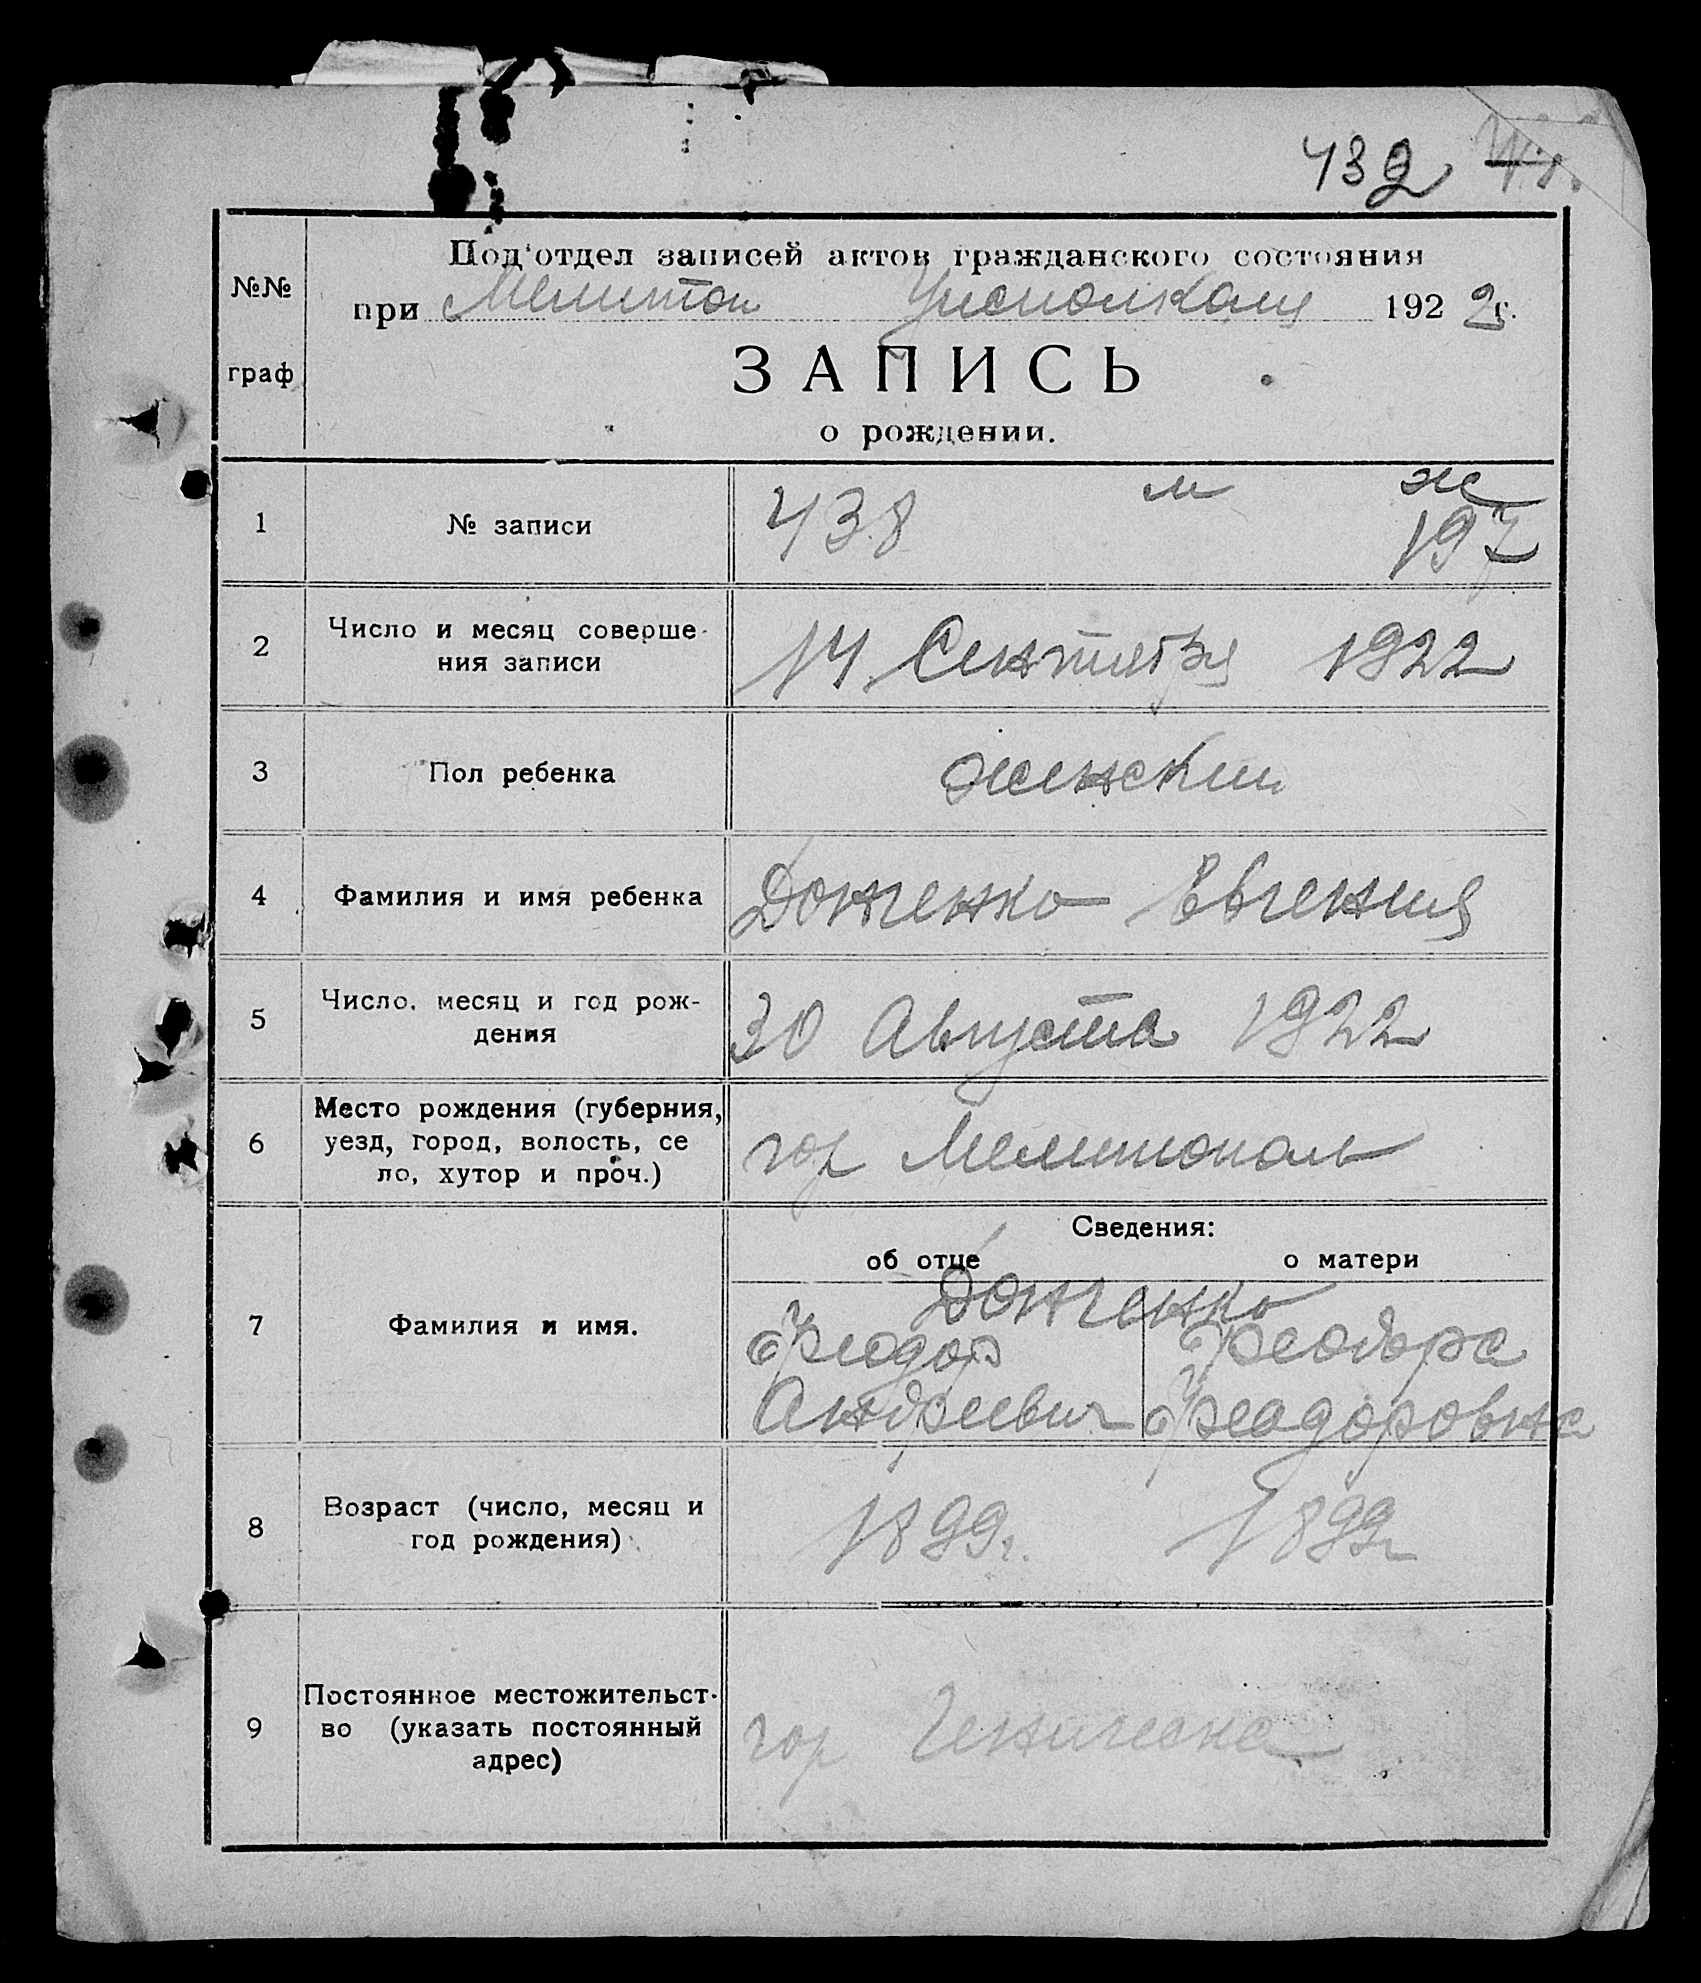 432
№№
граф
Подотдел записей актов гражданского состояния
при Мелитоп Уисполкома 1922 г.
ЗАПИСЬ
о рождении.
1 № записи 438 м ж
197
2 Число и месяц соверше-
ния записи
14 Сентября 1922
3 Пол ребенка женский
4 Фамилия и имя ребенка Донченко Евгения
5 Число, месяц и год рож-
дения
30 Августа 1922
6 Место рождения (губерния,
уезд, город, волость, се
ло, хутор и проч.)
гор Мелитополь
Сведения:
об отце о матери
7 Фамилия и имя.
Донченко
Феодор Феодора
Андреевич Феодоровна
8 Возраст (число, месяц и
год рождения)
1899г. 1899г
9 Постоянное местожительст-
во (указать постоянный
адрес)
гор Геническ